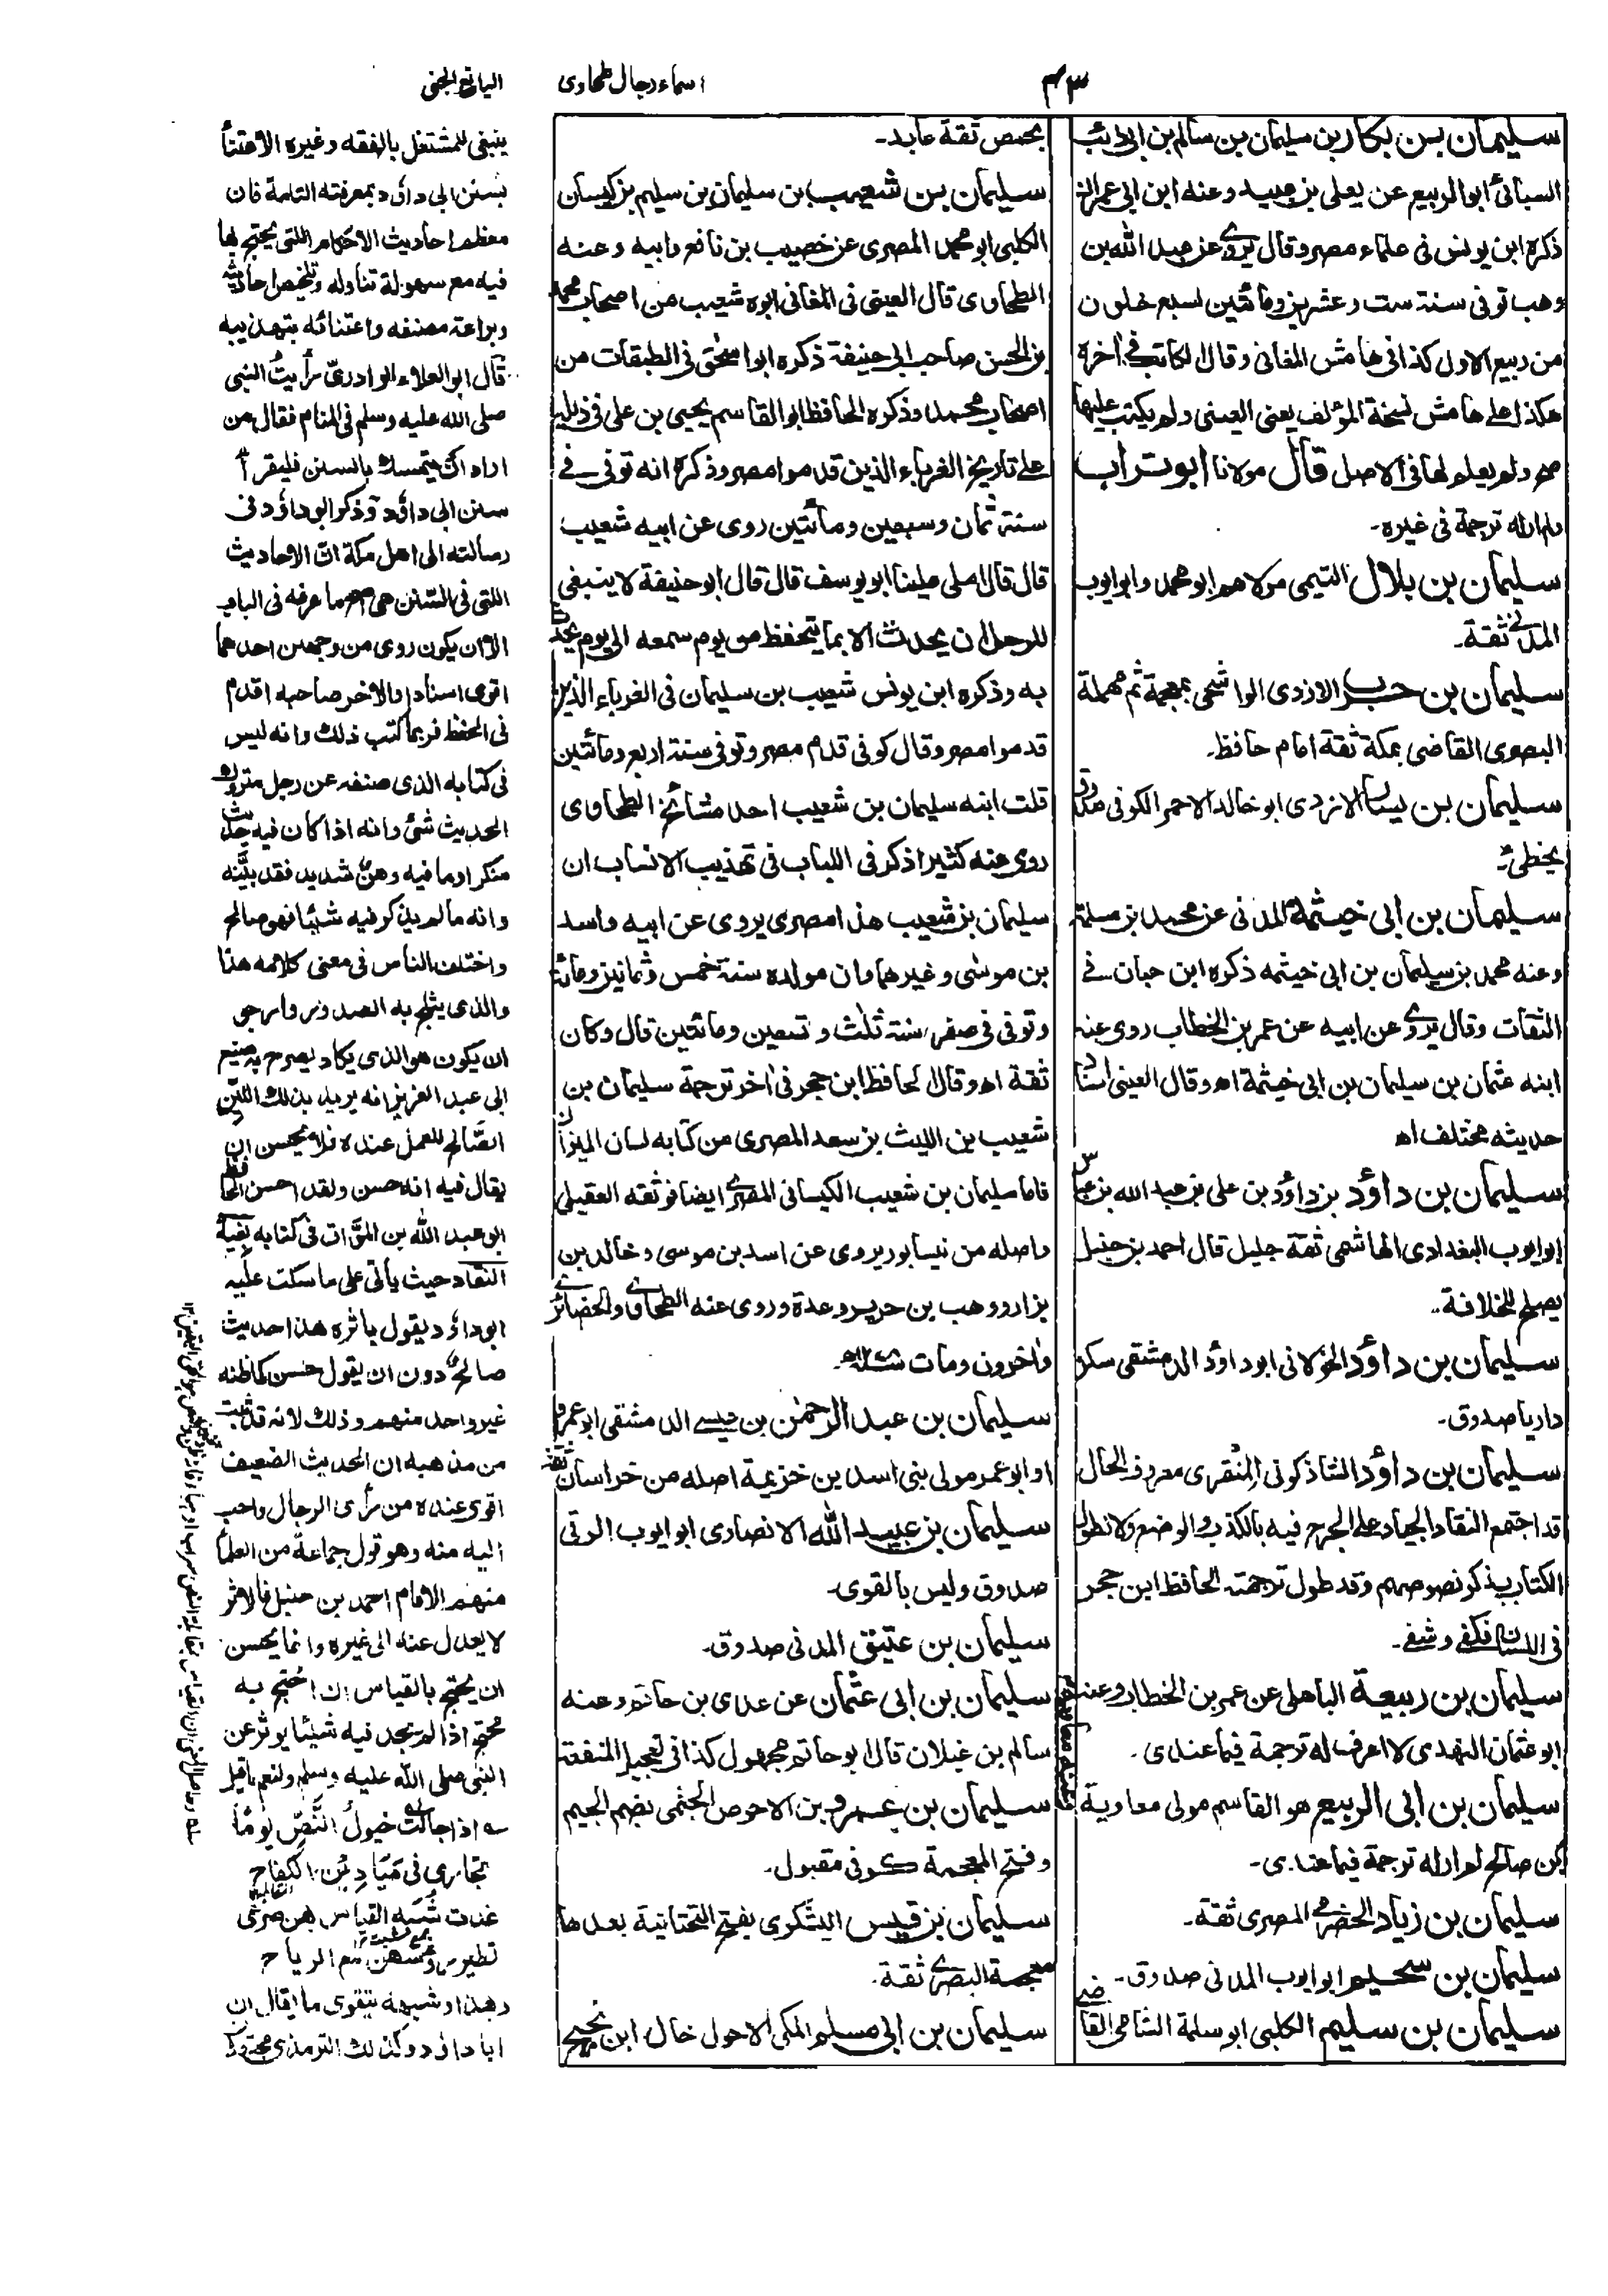 ۴۳
اسماء رجال طحاوی
الیانع الجنی
سلیمان بن بکار بن سلیمان بن سالم بن ابی
السبائی ابوالربیع عن یعلی بن عبید وعنه ابن ابی
ذکره ابن یونس فی علماء مصر وقال یروی عن عبد الله بن
وهب توفی سنة ست وعشرین ومائتین لسبع خلون
من ربیع الاول کذا فی هامش المغانی وقال الکاتب فی اخره
هکذا علی هامش نسخة المؤلف یعنی العینی ولم یکتب علیها
صح ولم یعلم لها فی الاصل قال مولانا ابوتراب
لم ار له ترجمة فی غیره۔
سلیمان بن بلال التیمی مولاهم ابو محمد وابو ایوب
المدنی ثقة۔
سلیمان بن حرب الازدی الواشحی بمعجمة ثم مهملة
البصری القاضی بمکة ثقة امام حافظ۔
سلیمان بن الازدی ابو خالد الاحمر الکوفی صدوق
یخطئ۔
سلیمان بن ابی خیثمة المدنی عن محمد بن سلمة
وعنه محمد بن سلیمان بن ابی خیثمه ذکره ابن حبان فے
الثقات وقال یروی عن ابیه عن عمر بن الخطاب روی عنه
ابنه عثمان بن سلیمان بن ابی خیثمة اھ وقال العینی اسناد
حدیثه مختلف اھ
سلیمان بن داؤد بن داؤد بن علی بن عبد الله بن عباس
ابو ایوب البغدادی الهاشمی ثقة جلیل قال احمد بن حنبل
یصلح للخلافة۔
سلیمان بن داؤد الخولانی ابو داؤد الدمشقی سکن
داریا صدوق۔
سلیمان بن داؤد الشاذکونی المنقری معروف الحال
قد اجتمع النقاد الجیاد علی الجرح فیه بالکذب والوضع ولا نطول
الکتاب بذکر نصوصهم وقد طول ترجمته الحافظ ابن حجر
فی اللسان فکفی وشفی۔
سلیمان بن ربیعة الباهلی عن عمر بن الخطاب وعنه
ابو عثمان النهدی لا اعرف له ترجمة فیما عندی۔
سلیمان بن ابی الربیع هو القاسم مولی معاویة
بن صالح لم ار له ترجمة فیما عندی۔
سلیمان بن زیاد الحضرمی المصری ثقة۔
سلیمان بن سحیم ابو ایوب المدنی صدوق۔
سلیمان بن سلیم الکلبی ابو سلمة الشامی القاضی
بحمص ثقة عابد۔
سلیمان بن شعیب بن سلیمان بن سلیم بن کیسان
الکلبی ابو محمد المصری عن خصیب بن ناصح وابیه وعنه
الطحاوی قال العینی فی المغانی ابوه شعیب من اصحاب محمد
بن الحسن صاحب ابی حنیفة ذکره ابو اسحٰق فی الطبقات من
اصحاب محمد وذکره الحافظ ابو القاسم یحیی بن علی فی ذیله
علی تاریخ الغرباء الذین قدموا مصر وذکره انه توفی فے
سنة ثمان وسبعین ومائتین روی عن ابیه شعیب
قال قال املی علینا ابو یوسف قال قال ابو حنیفة لا ینبغی
للرجل ان یحدث الا بما یتحفظ من یوم سمعه الی یوم یحدث
به وذکره ابن یونس شعیب بن سلیمان فی الغرباء الذین
قدموا مصر وقال کوفی قدم مصر وتوفی سنة اربع ومائتین
قلت ابنه سلیمان بن شعیب احد مشائخ الطحاوی
روی عنه کثیرا ذکر فی اللباب فی تهذیب الانساب ان
سلیمان بن شعیب هذا مصری یروی عن ابیه واسد
بن موسٰی وغیرهما وان مولده سنة خمس وثمانین ومائة
وتوفی فی صفر سنة ثلث وتسعین ومائتین قال وکان
ثقة اھ وقال الحافظ ابن حجر فی اٰخر ترجمة سلیمان بن
شعیب بن اللیث بن سعد المصری من کتابه لسان المیزان
فاما سلیمان بن شعیب الکیسانی المصری ایضا فوثقه العقیلی
واصله من نیسابور یروی عن اسد بن موسی وخالد بن
نزار ووهب بن جریر وعدة وروی عنه الطحاوی والحضائری
واٰخرون ومات
سلیمان بن عبد الرحمٰن بن عیسے الدمشقی ابو عمرو
او ابو عمر مولی بنی اسد بن خزیمة اصله من خراسان ثقة
سلیمان بن عبید الله الانصاری ابو ایوب الرقی
صدوق ولیس بالقوی۔
سلیمان بن عتیق المدنی صدوق۔
سلیمان بن ابی عثمان عن عدی بن حاتم وعنه
سالم بن غیلان قال ابو حاتم مجهول کذا فی تعجیل المنفعة
سلیمان بن عمرو بن الاحوص الجشمی بضم الجیم
وفتح المعجمة کوفی مقبول۔
سلیمان بن قیس الیشکری بفتح التحتانیة بعدها
معجمة البصری ثقة۔
سلیمان بن ابی مسلم المکی الاحول خال ابن نجیح
ینبغی للمشتغل بالفقه وغیره الاعتنأ
بسنن ابی داؤد بمعرفته التامة فان
معظم احادیث الاحکام اللتی یحتج بها
فیه مع سهولة تناوله وتلخیص احادیثه
وبراعة مصنفه واعتنائه بتهذیبه
قال ابو العلاء الوادریّ رأیتُ النبی
صلی الله علیه وسلم فی المنام فقال من
اراد ان یتمسك بالسنن فلیقرأ
سنن ابی داؤد وذکر ابو داؤد فی
رسالته الی اهل مکة انّ الاحادیث
اللتی فی السّنن هی اصح ما عرفه فی الباب
الا ان یکون روی من وجهین احدهما
اقوی اسنادا والاٰخر صاحبه اقدم
فی الحفظ فربما کتب ذلك وانه لیس
فی کتابه الذی صنفه عن رجل متروك
الحدیث شئ وانه اذا کان فیه حدیث
منکر او ما فیه وهنٌ شدید فقد بیّنه
وانه ما لم یذکر فیه شیئا فهو صالح
واختلف الناس فی معنی کلامه هذا
والذی یثلج به الصدور وارجو
ان یکون هو الذی یکاد یصرح به صنیع
ابی عبد العزیز انه یرید بذلك اللیّن
الصّالح للعمل عنده فلا یحسن ان
یقال فیه انه حسن ولقد احسن الحافظ
ابو عبد الله بن الموّاق فی کتابه بغیة
النقاد حیث یأتی علی ما سکت علیه
ابو داؤد یقول باثره هذا حدیث
صالحٌ دون ان یقول حسن کما ظنه
غیر واحد منهم وذلك لانه قد ثبت
من مذهبه ان الحدیث الضعیف
اقوی عنده من رأی الرجال واحب
الیه منه وهو قول جماعة من العلمأ
منهم الامام احمد بن حنبل فالاثر
لا یعدل عنه الی غیره وانما یحسن
ان یحتج بالقیاس ان احتج به
محتج اذا لم یجد فیه شیئا یوثر عن
النبی صلی الله علیه وسلم ولنعم ما قیل
اذا جالت خیولُ النّصِّ یومًا
تجاری فی میادین الکفاح
غدت شُبَه القیاس بهن صرعٰی
تطیر رؤسهن مع الریاح
وهذا وشبهه یتقوی ما یقال ان
ابا داؤد وکذلك الترمذی